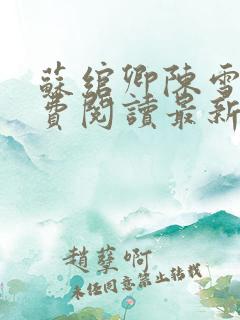 蘇綰卿陳雪
費閱讀最新
趙孽啊
未經同意禁止轉載